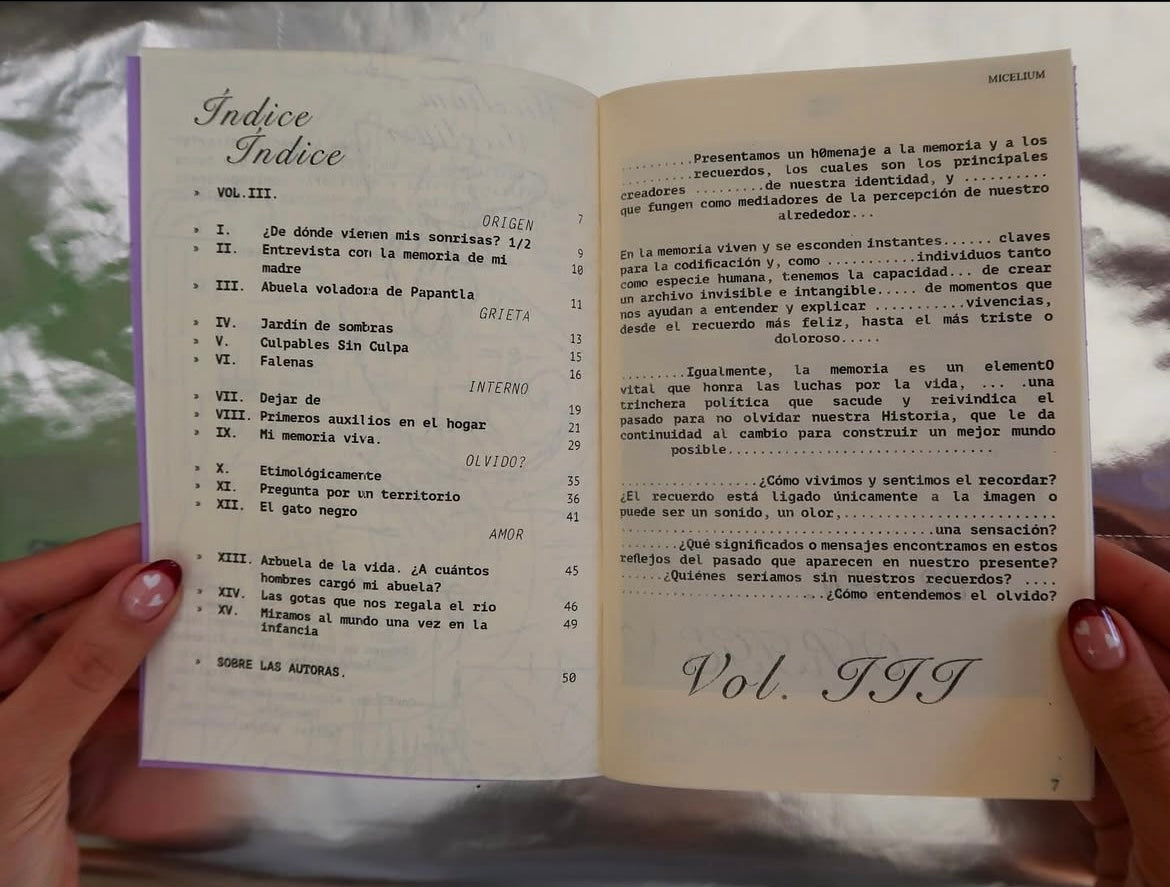 Índice
Índice
» VOL.III. 7
ORIGEN
» I. ¿De dónde vienen mis sonrisas? 1/2 9
» II. Entrevista con la memoria de mi 10
madre
» III. Abuela voladora de Papantla 11
GRIETA
» IV. Jardín de sombras 13
» V. Culpables Sin Culpa 15
» VI. Falenas 16
INTERNO
» VII. Dejar de 19
» VIII. Primeros auxilios en el hogar 21
» IX. Mi memoria viva. 29
OLVIDO?
» X. Etimológicamente 35
» XI. Pregunta por un territorio 36
» XII. El gato negro 41
AMOR
» XIII. Arbuela de la vida. ¿A cuántos 45
hombres cargó mi abuela?
» XIV. Las gotas que nos regala el río 46
» XV. Miramos al mundo una vez en la 49
infancia
» SOBRE LAS AUTORAS. 50
MICELIUM
.........Presentamos un h0menaje a la memoria y a los
..........recuerdos, los cuales son los principales
creadores .........de nuestra identidad, y ..........
que fungen como mediadores de la percepción de nuestro
alrededor...
En la memoria viven y se esconden instantes...... claves
para la codificación y, como ...........individuos tanto
como especie humana, tenemos la capacidad... de crear
un archivo invisible e intangible..... de momentos que
nos ayudan a entender y explicar ..........vivencias,
desde el recuerdo más feliz, hasta el más triste o
doloroso.....
........Igualmente, la memoria es un elementO
vital que honra las luchas por la vida, ... .una
trinchera política que sacude y reivindica el
pasado para no olvidar nuestra Historia, que le da
continuidad al cambio para construir un mejor mundo
posible................................
.................¿Cómo vivimos y sentimos el recordar?
¿El recuerdo está ligado únicamente a la imagen o
puede ser un sonido, un olor,..........................
......................................una sensación?
.......¿Qué significados o mensajes encontramos en estos
reflejos del pasado que aparecen en nuestro presente?
......¿Quiénes seríamos sin nuestros recuerdos? ....
.........................¿Cómo entendemos el olvido?
Vol. III
7